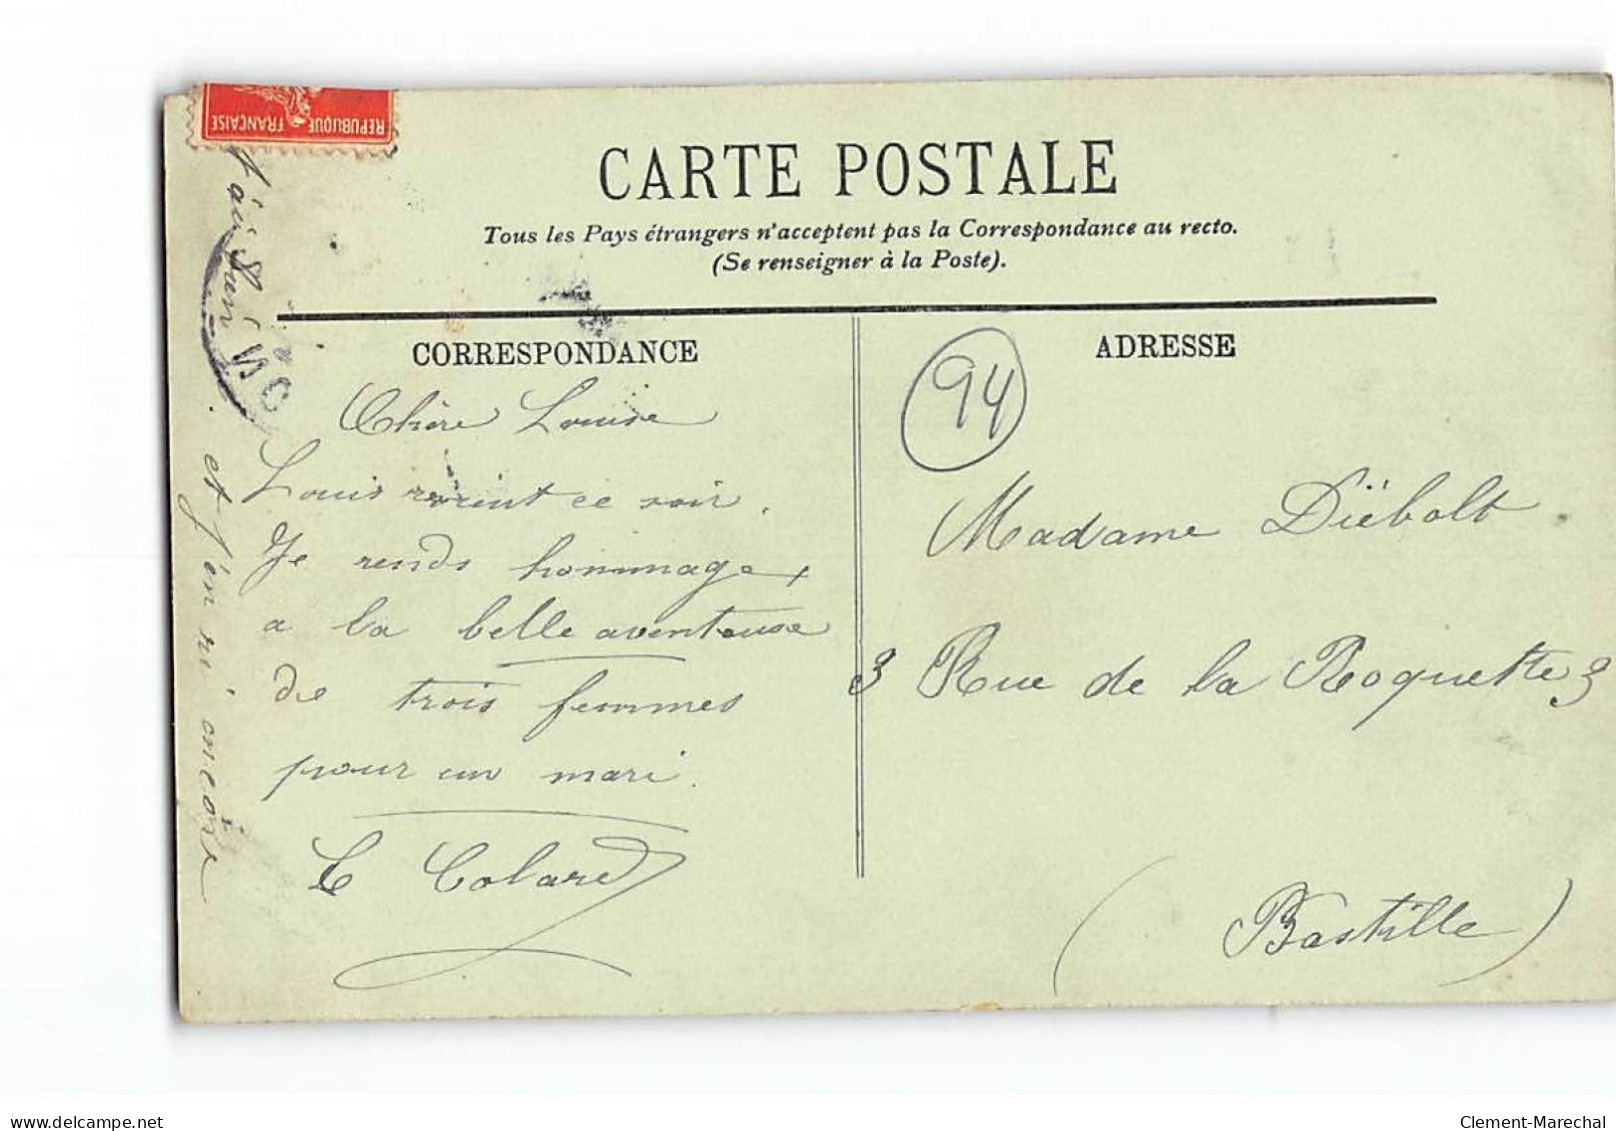 RÉPUBLIQUE FRANÇAISE
CARTE POSTALE
Tous les Pays étrangers n'acceptent pas la Correspondance au recto.
(Se renseigner à la Poste).
CORRESPONDANCE
Chère Louise
Louis revient ce soir.
Je rends hommage
a la belle aventeuse
de trois femmes
pour un mari.
L Colard
J'ai bien
. et j'en ri encore
ADRESSE
94
Madame Diëbolt
3 Rue de la Roquette 3
(Bastille)
delcampe.net
Clement-Marechal